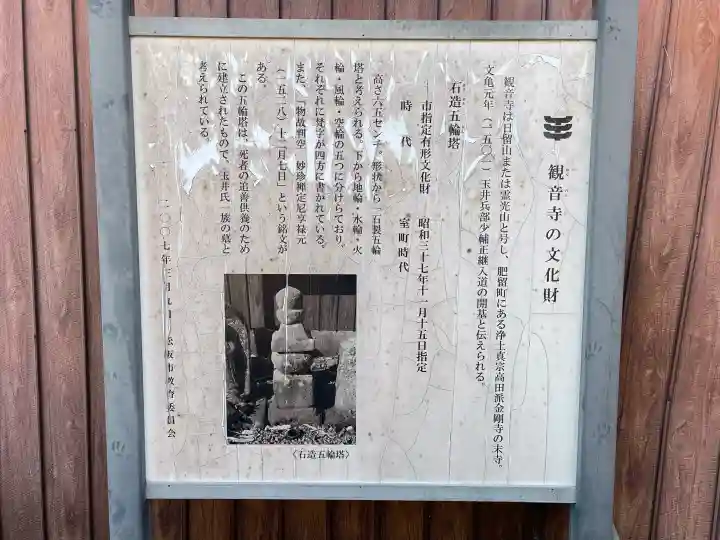 観音寺の文化財
観音寺は日留山または霊光山と号し、肥留町にある浄土真宗高田派金剛寺の末寺。
文亀元年(一五〇一)玉井兵部少輔正継入道の開基と伝えられる。
石造五輪塔
市指定有形文化財 昭和三十七年十一月十五日指定
時 代 室町時代
高さ六五センチ。形状から一石製五輪
塔と考えられる。下から地輪・水輪・火
輪・風輪・空輪の五つに分けらており。
それぞれに梵字が四方に書かれている。
また、「物故判空 妙珍禅定尼享禄元
(一五二八)十二月七日」という銘文が
ある。
この五輪塔は、死者の追善供養のため
に建立されたもので、玉井氏一族の墓と
考えられている。
二〇〇七年三月 日 松阪市教育委員会
〈石造五輪塔〉